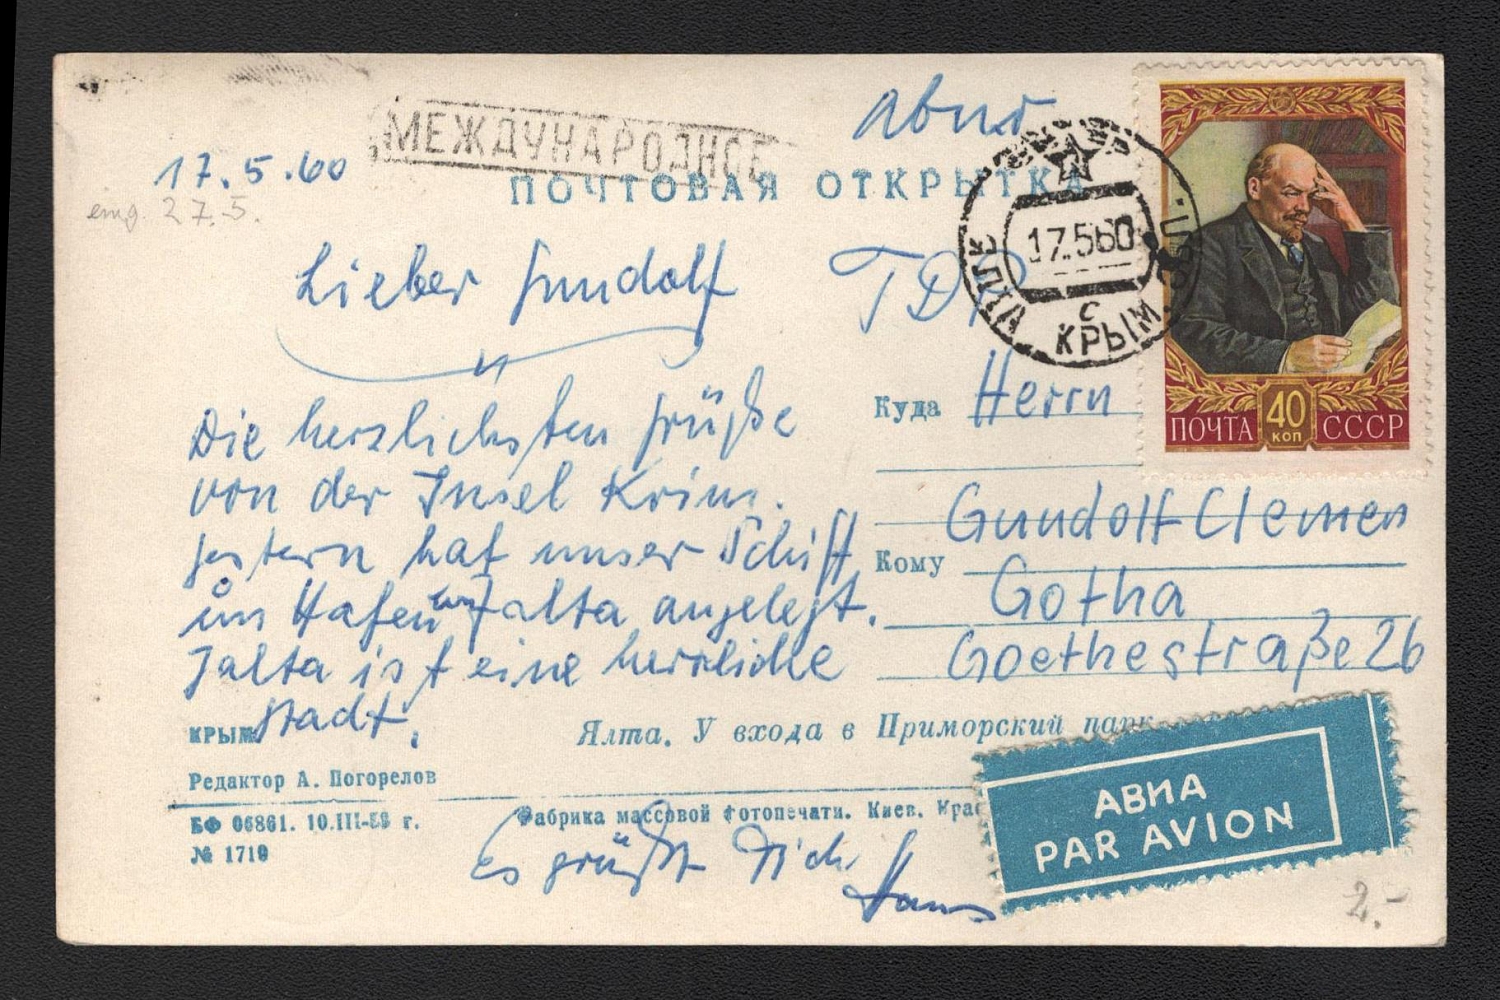 авиа
МЕЖДУНАРОДНОЕ
17.5.60
ПОЧТОВАЯ ОТКРЫТКА
27.5.
17.5.60
С
КРЫМ. ОБЛ.
Lieber Gundolf
ГДР
Die herzlichsten Grüße
von der Insel Krim.
Gestern hat unser Schiff
im Hafen von Jalta angelegt.
Jalta ist eine herrliche
Stadt.
ПОЧТА 40 КОП СССР
Куда Herrn
Gundolf Clemen
Кому
Gotha
Goethestraße 26
КРЫМ
Ялта. У входа в Приморский парк
Редактор А. Погорелов
БФ 06861. 10.III-59 г.
№ 1710
Фабрика массовой фотопечати. Киев.
Es grüßt Dich
Hans
АВИА
PAR AVION
2.-